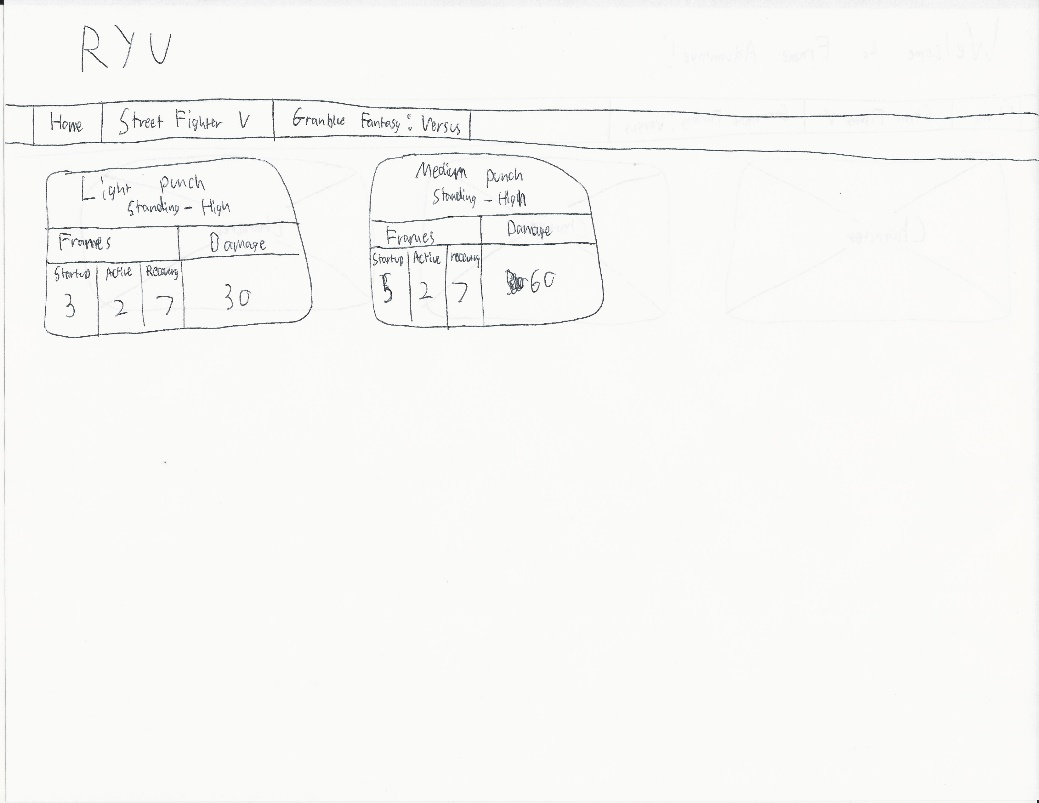 RYU
Home Street Fighter V Granblue Fantasy: Versus
Light punch
Standing - High
Frames Damage
Startup Active Recovery
3 2 7 30
Medium punch
Standing - High
Frames Damage
Startup Active recovery
5 2 7 60